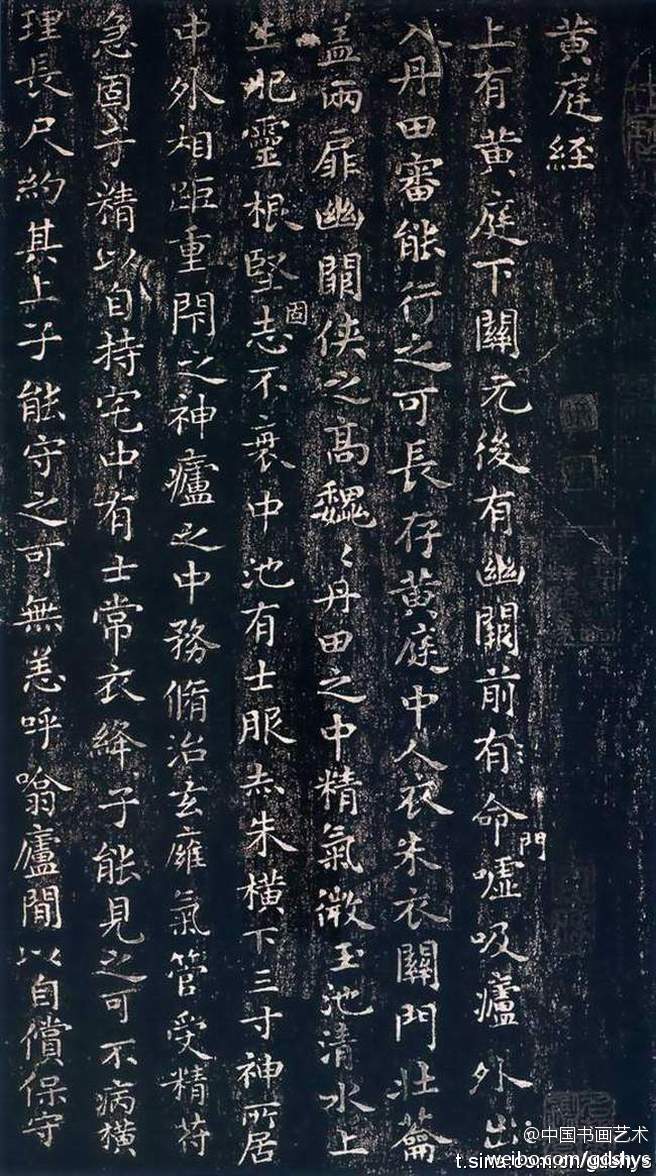 黄庭經
上有黄庭下關元後有幽闕前有命門噓吸廬外出
入丹田審能行之可長存黄庭中人衣朱衣關門壯籥
蓋兩扉幽闕俠之高魏〻丹田之中精氣微玉池清水上
生肥靈根堅固志不衰中池有士服赤朱橫下三寸神所居
中外相距重閇之神廬之中務脩治玄㢕氣管受精苻
急固子精以自持宅中有士常衣絳子能見之可不病橫
理長尺約其上子能守之可無恙呼噏廬間以自償保守
@中国书画艺术
t.sina.com.cn/gdshys
weibo.com/gdshys